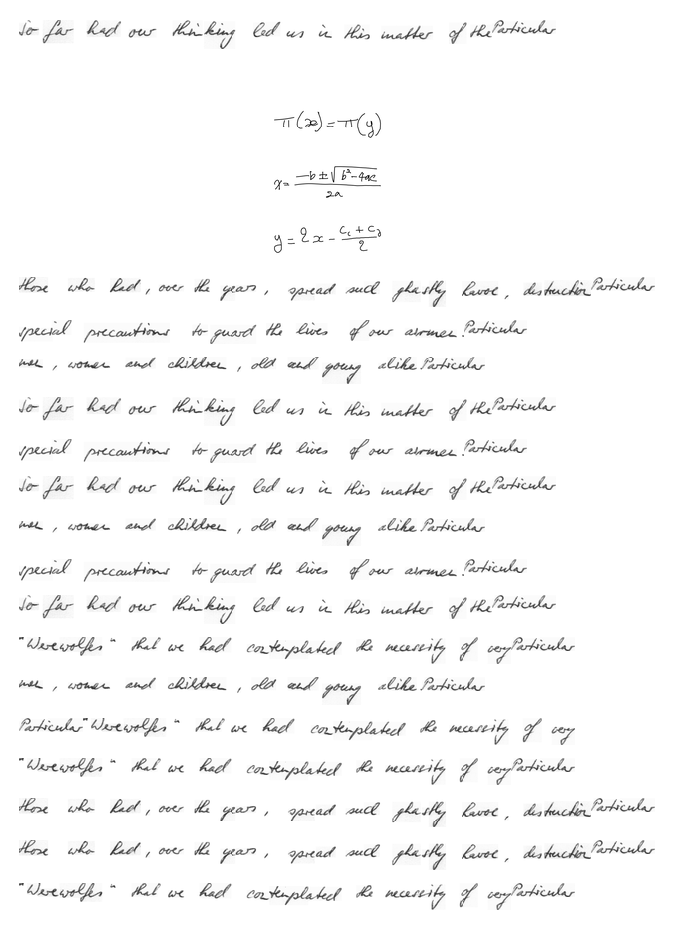 So far had our thinking led us in this matter of the Particular
π(x)=π(y)
x=\frac{-b±\sqrt{b^2-4ac}}{2a}
y=2x-\frac{c_1+c_2}{2}
those who had, over the years, spread such ghastly havoc, destruction Particular
special precautions to guard the lives of our airmen. Particular
men, women and children, old and young alike Particular
So far had our thinking led us in this matter of the Particular
special precautions to guard the lives of our airmen. Particular
So far had our thinking led us in this matter of the Particular
men, women and children, old and young alike Particular
special precautions to guard the lives of our airmen. Particular
So far had our thinking led us in this matter of the Particular
"Werewolfes" that we had contemplated the necessity of very Particular
men, women and children, old and young alike Particular
Particular "Werewolfes" that we had contemplated the necessity of very
"Werewolfes" that we had contemplated the necessity of very Particular
those who had, over the years, spread such ghastly havoc, destruction Particular
those who had, over the years, spread such ghastly havoc, destruction Particular
"Werewolfes" that we had contemplated the necessity of very Particular